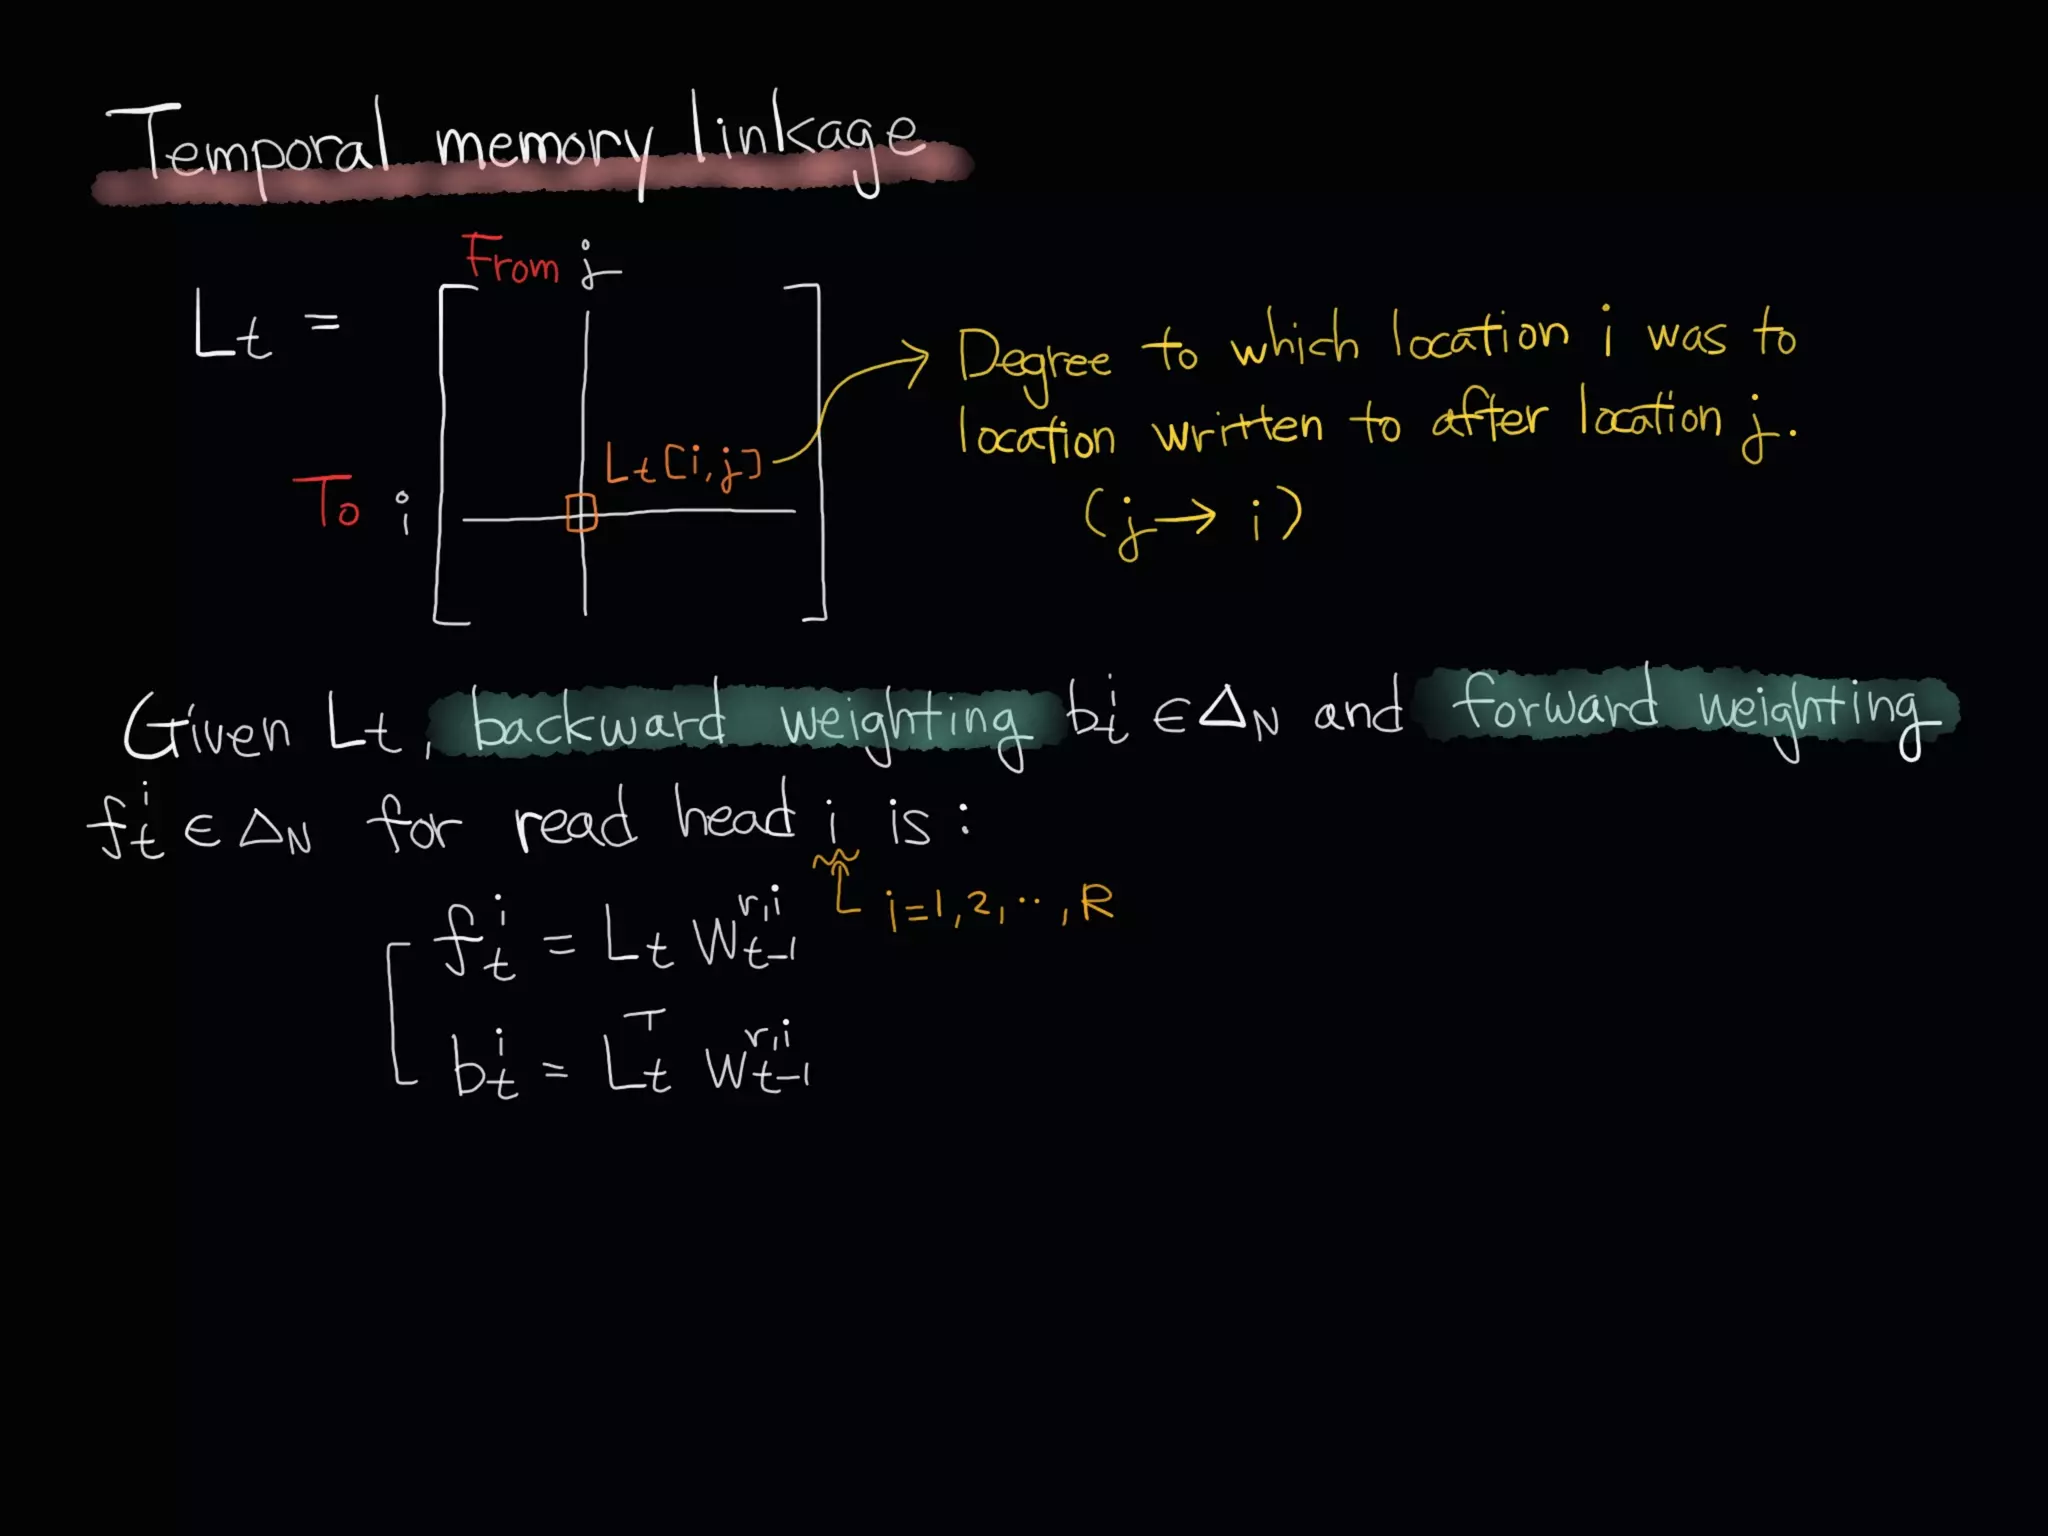 Temporal memory linkage
From j
L_t =
L_t[i,j]
To i
Degree to which location i was to
location written to after location j.
(j → i)
Given L_t, backward weighting b_t^i ∈ Δ_N and forward weighting
f_t^i ∈ Δ_N for read head i is:
i=1,2,..,R
f_t^i = L_t W_{t-1}^{r,i}
b_t^i = L_t^T W_{t-1}^{r,i}